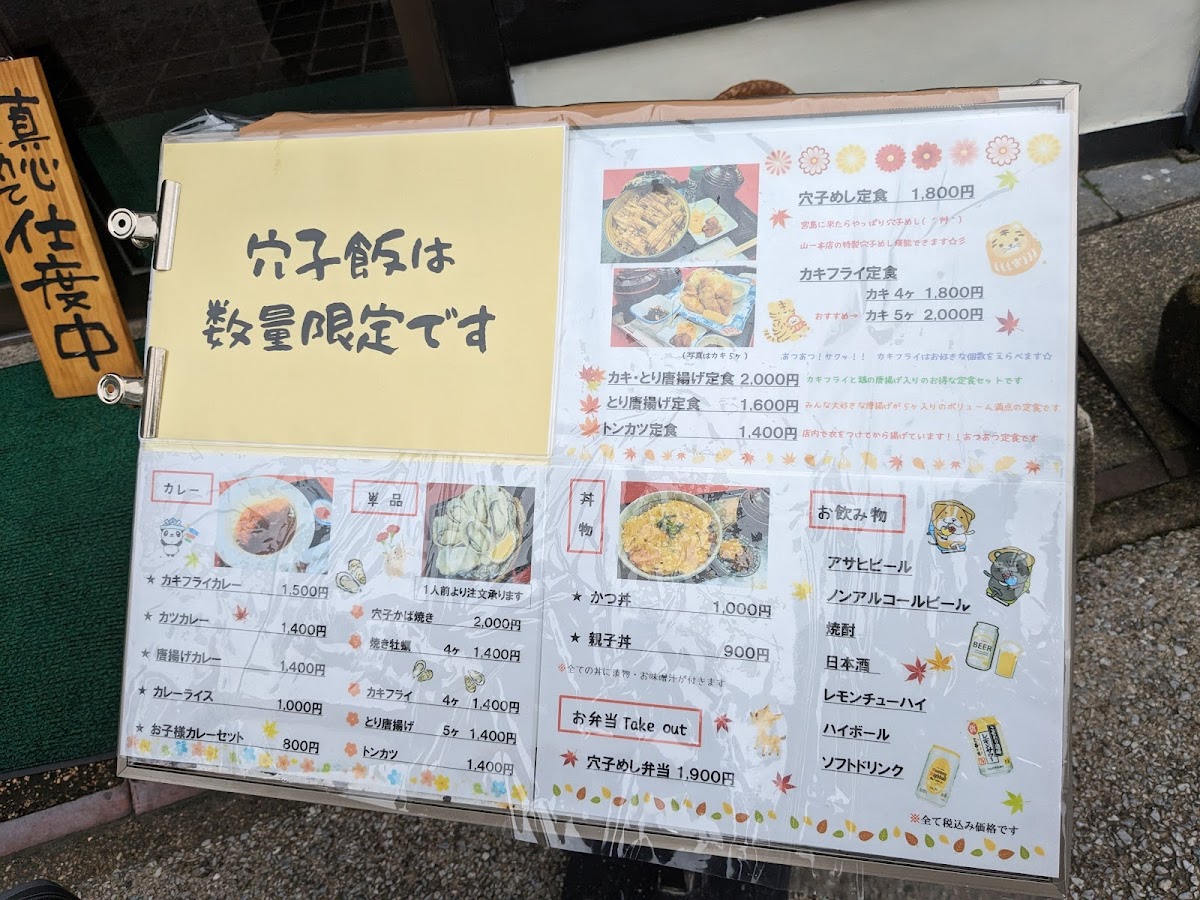 真心
込めて
仕度中
穴子飯は
数量限定です
穴子めし定食 1,800円
宮島に来たらやっぱり穴子めし(＾艸＾)
山一本店の特製穴子めし堪能できます☆彡
カキフライ定食
カキ 4ヶ 1,800円
おすすめ→ カキ 5ヶ 2,000円
(写真はカキ5ヶ)
あつあつ！サクッ！！ カキフライはお好きな個数をえらべます☆
カキ・とり唐揚げ定食 2,000円 カキフライと鶏の唐揚げ入りのお得な定食セットです
とり唐揚げ定食 1,600円 みんな大好きな唐揚げが5ヶ入りのボリューム満点の定食です
トンカツ定食 1,400円 店内で衣をつけてから揚げています！！あつあつ定食です
カレー
★ カキフライカレー 1,500円
★ カツカレー 1,400円
★ 唐揚げカレー 1,400円
★ カレーライス 1,000円
★ お子様カレーセット 800円
単品
1人前より注文承ります
穴子かば焼き 2,000円
焼き牡蠣 4ヶ 1,400円
カキフライ 4ヶ 1,400円
とり唐揚げ 5ヶ 1,400円
トンカツ 1,400円
丼物
★ かつ丼 1,000円
★ 親子丼 900円
※全ての丼に漬物・お味噌汁が付きます
お弁当 Take out
穴子めし弁当 1,900円
お飲み物
アサヒビール
ノンアルコールビール
焼酎
日本酒
レモンチューハイ
ハイボール
ソフトドリンク
BEER
※全て税込み価格です